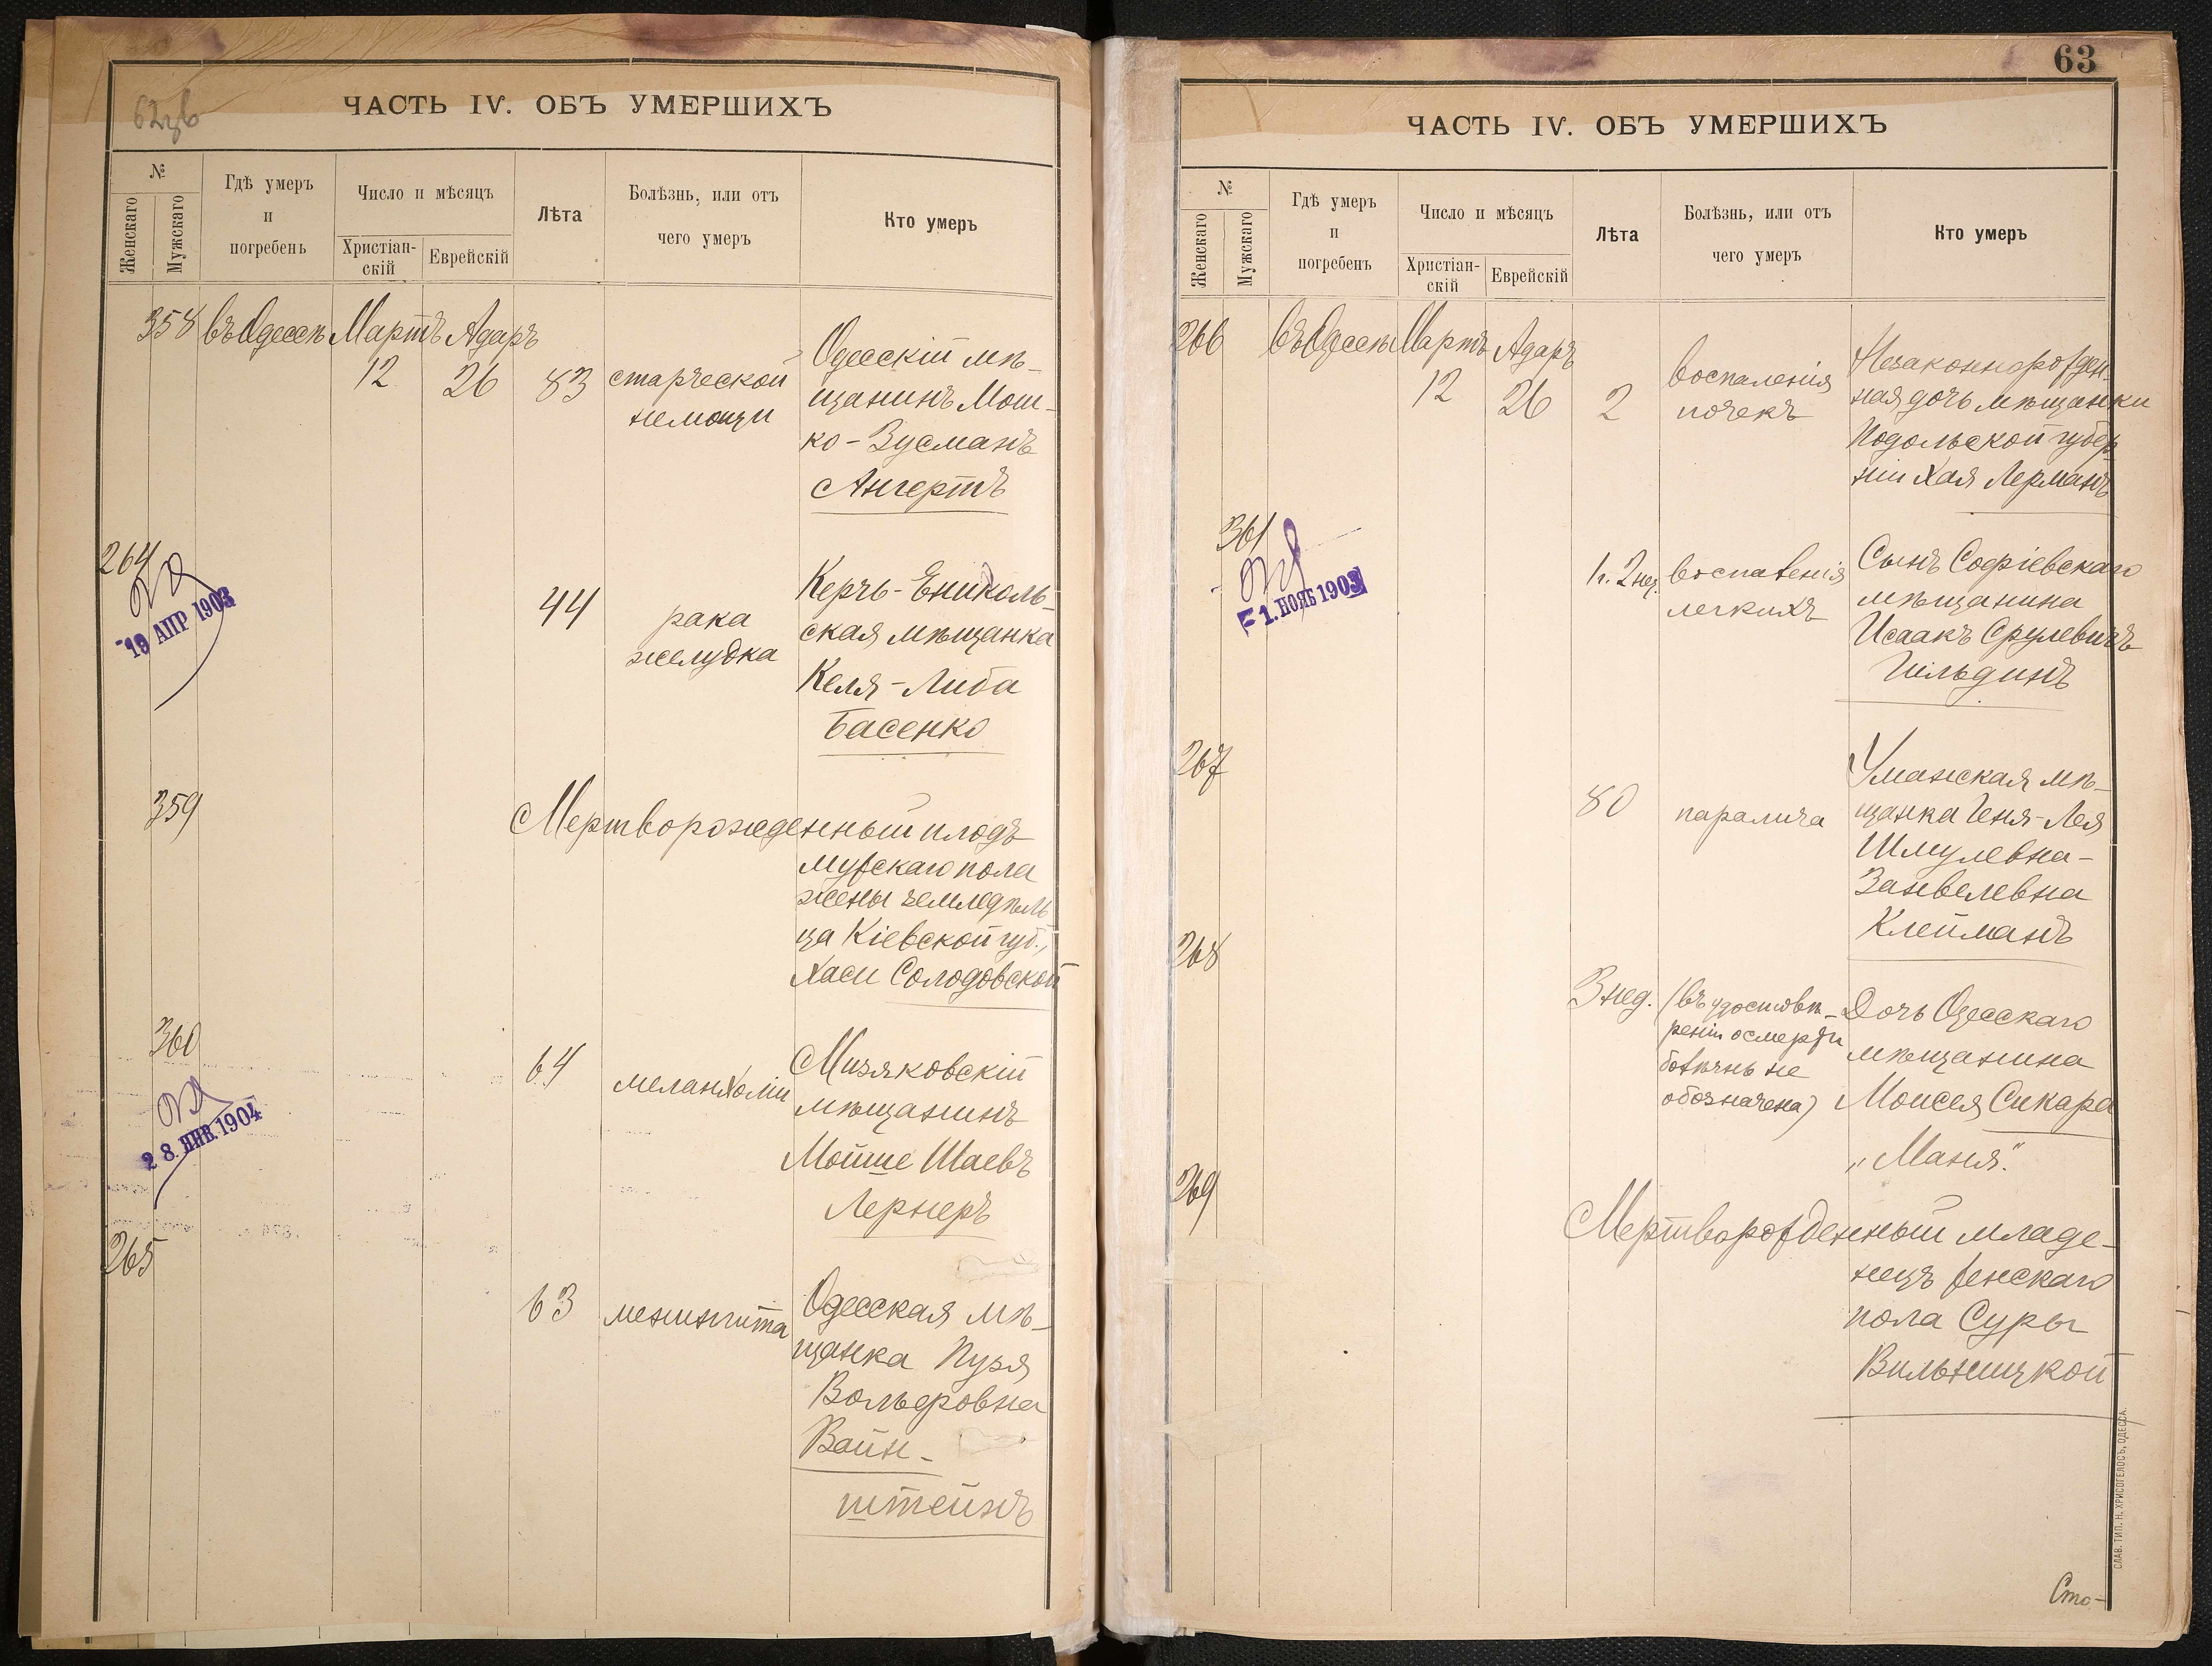 ЧАСТЬ IV. ОБЪ УМЕРШИХЪ
№
Женскаго
Мужскаго
Гдѣ умеръ
и
погребенъ
Число и мѣсяцъ
Христіан-
скій
Еврейскій
Лѣта
Болѣзнь, или отъ
чего умеръ
Кто умеръ
358 въ Одессѣ Мартъ Адаръ
12 26 83
старческой
немощи
Одесскій мѣ-
щанинъ Мош-
ко-Зусманъ
Ангертъ
264
19 АПР 1903
44
рака
желудка
Керчь-Ениколь-
ская мѣщанка
Келя-Либа
Басенко
359
Мертворожденный плодъ
мужскаго пола
жены земледѣль
ца Кіевской губ.,
Хаси Солодовской
360
28. ЯНВ. 1904
64
меланхоліи
Мизяковскій
мѣщанинъ
Мойше Шаевъ
Лернеръ
265
63
менингита
Одесская мѣ-
щанка Пузя
Вольфовна
Вайн-
штейнъ
63
ЧАСТЬ IV. ОБЪ УМЕРШИХЪ
№
Женскаго
Мужскаго
Гдѣ умеръ
и
погребенъ
Число и мѣсяцъ
Христіан-
скій
Еврейскій
Лѣта
Болѣзнь, или отъ
чего умеръ
Кто умеръ
266 въ Одессѣ Мартъ Адаръ
12 26 2
воспаленія
почекъ
Незаконнорожден-
ная дочь мѣщанки
Подольской губер
ніи Хая Лерманъ
361
1. НОЯБ 1903
1 г. 2 нед.
воспаленія
легкихъ
Сынъ Софіевскаго
мѣщанина
Исаакъ Срулевичъ
Гильдинъ
267
80
паралича
Уманская мѣ-
щанка Геня-Лея
Шмулевна-
Занвелевна
Клейманъ
268
3 нед.
(въ удостовѣ-
реніи о смерти
болѣзнь не
обозначена)
Дочь Одесскаго
мѣщанина
Моисея Сикара
„Маня."
269
Мертворожденный младе-
нецъ женскаго
пола Суры
Вильницкой
Сто-
СЛАВ. ТИП. Н. ХРИСОГЕЛОСЪ, ОДЕССА.